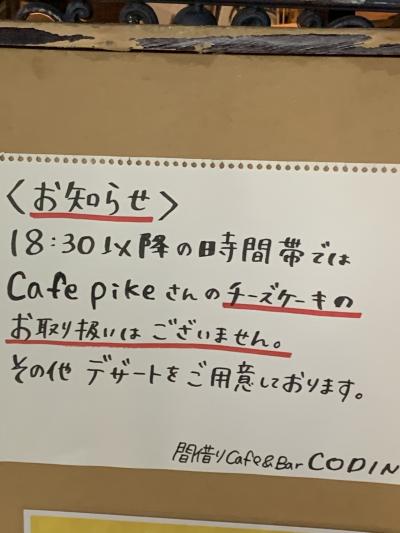 〈お知らせ〉
18:30以降の時間帯では
Cafe pikeさんのチーズケーキの
お取り扱いはございません。
その他デザートをご用意しております。
間借りCafe&Bar CODIN